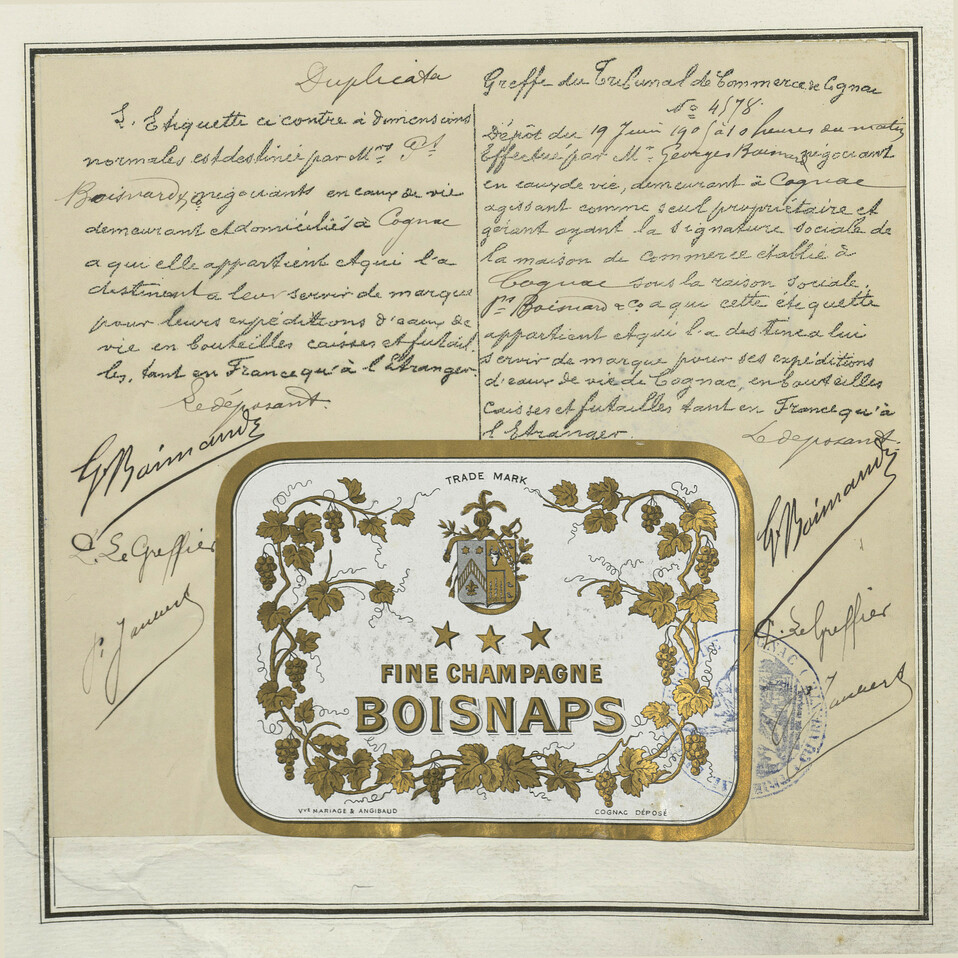 Duplicata
L'Etiquette ci contre à dimensions
normales est destinée par Mrs Ps
Boisnard & Co négociants en eaux de vie
demeurant et domiciliés à Cognac
a qui elle appartient et qui l'a
destinent a leur servir de marque
pour leurs expéditions d'eaux de
vie en bouteilles caisses et futail
les, tant en France qu'à l'Etranger.
Le déposant.
P. Le Greffier
Greffe du Tribunal de Commerce de Cognac
No 4578.
Dépôt du 19 Juin 1905 à 10 heures du matin
Effectué par Mr Georges Boisnard négociant
en eaux de vie, demeurant à Cognac
agissant comme seul propriétaire et
gérant ayant la signature sociale de
la maison de commerce établie à
Cognac sous la raison sociale.
Ps Boisnard & Co a qui cette étiquette
appartient et qui l'a destine a lui
servir de marque pour ses expéditions
d'eaux de vie de Cognac, en bouteilles
caisses et futailles tant en France qu'à
l'Etranger.
Le déposant.
P. Le Greffier
TRADE MARK
FINE CHAMPAGNE
BOISNAPS
Vve MARIAGE & ANGIBAUD
COGNAC DÉPOSÉ